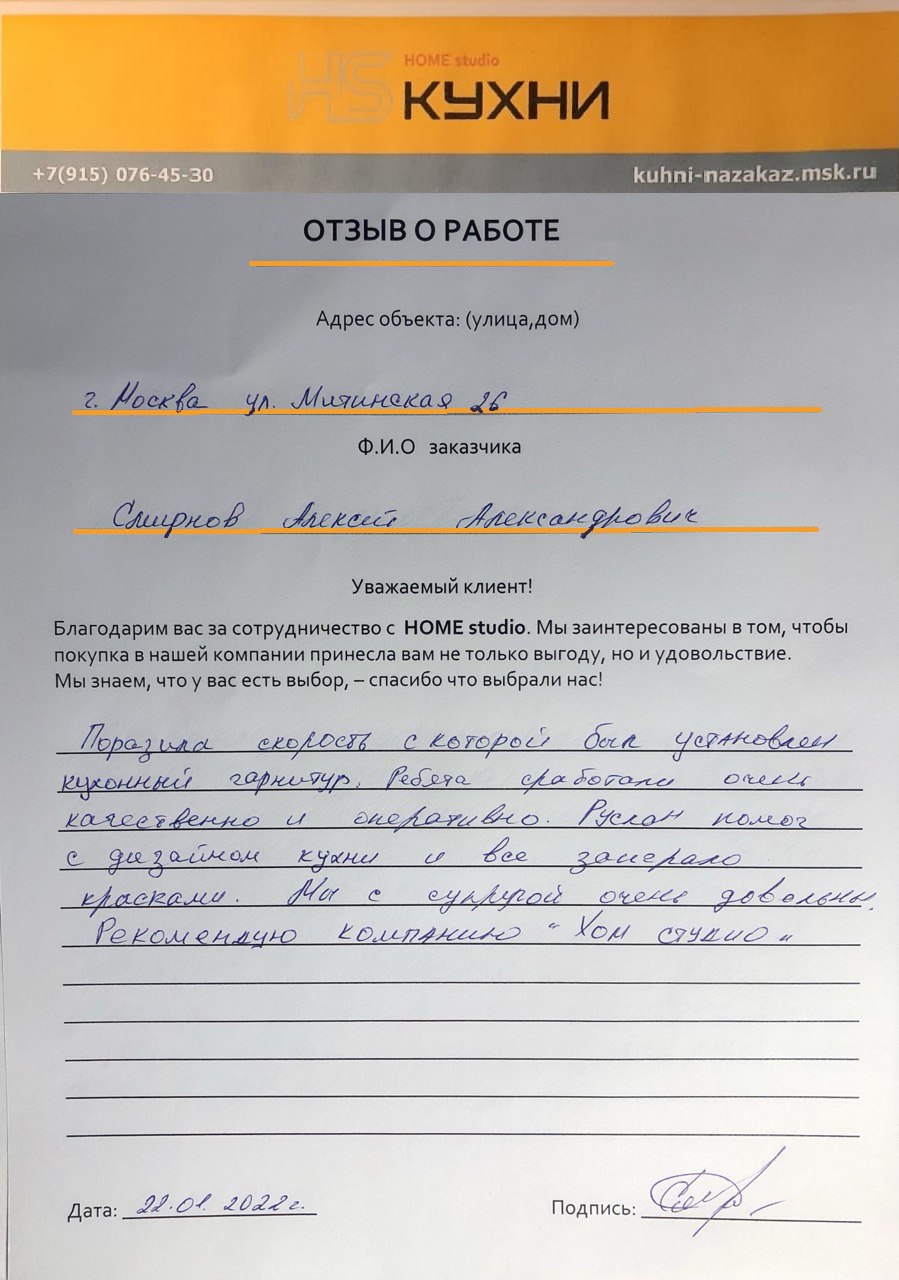 HS HOME studio
КУХНИ
+7(915) 076-45-30 kuhni-nazakaz.msk.ru
ОТЗЫВ О РАБОТЕ
Адрес объекта: (улица,дом)
г. Москва ул. Митинская 26
Ф.И.О заказчика
Смирнов Алексей Александрович
Уважаемый клиент!
Благодарим вас за сотрудничество с HOME studio. Мы заинтересованы в том, чтобы
покупка в нашей компании принесла вам не только выгоду, но и удовольствие.
Мы знаем, что у вас есть выбор, – спасибо что выбрали нас!
Поразила скорость с которой был установлен
кухонный гарнитур. Ребята сработали очень
качественно и оперативно. Руслан помог
с дизайном кухни и все заиграло
красками. Мы с супругой очень довольны.
Рекомендую компанию "Хом студио"
Дата: 22.01.2022г. Подпись: